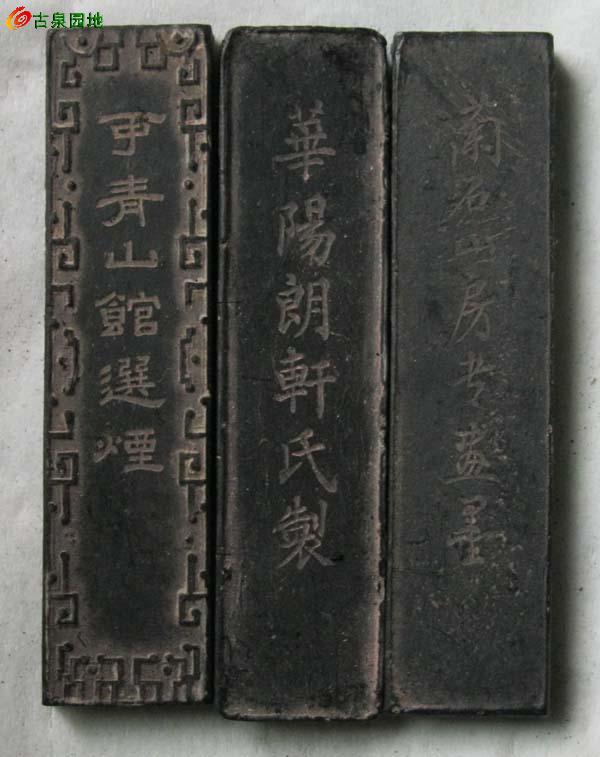 古泉园地
青山館選煙
華陽朗軒氏製
石山房书畫墨